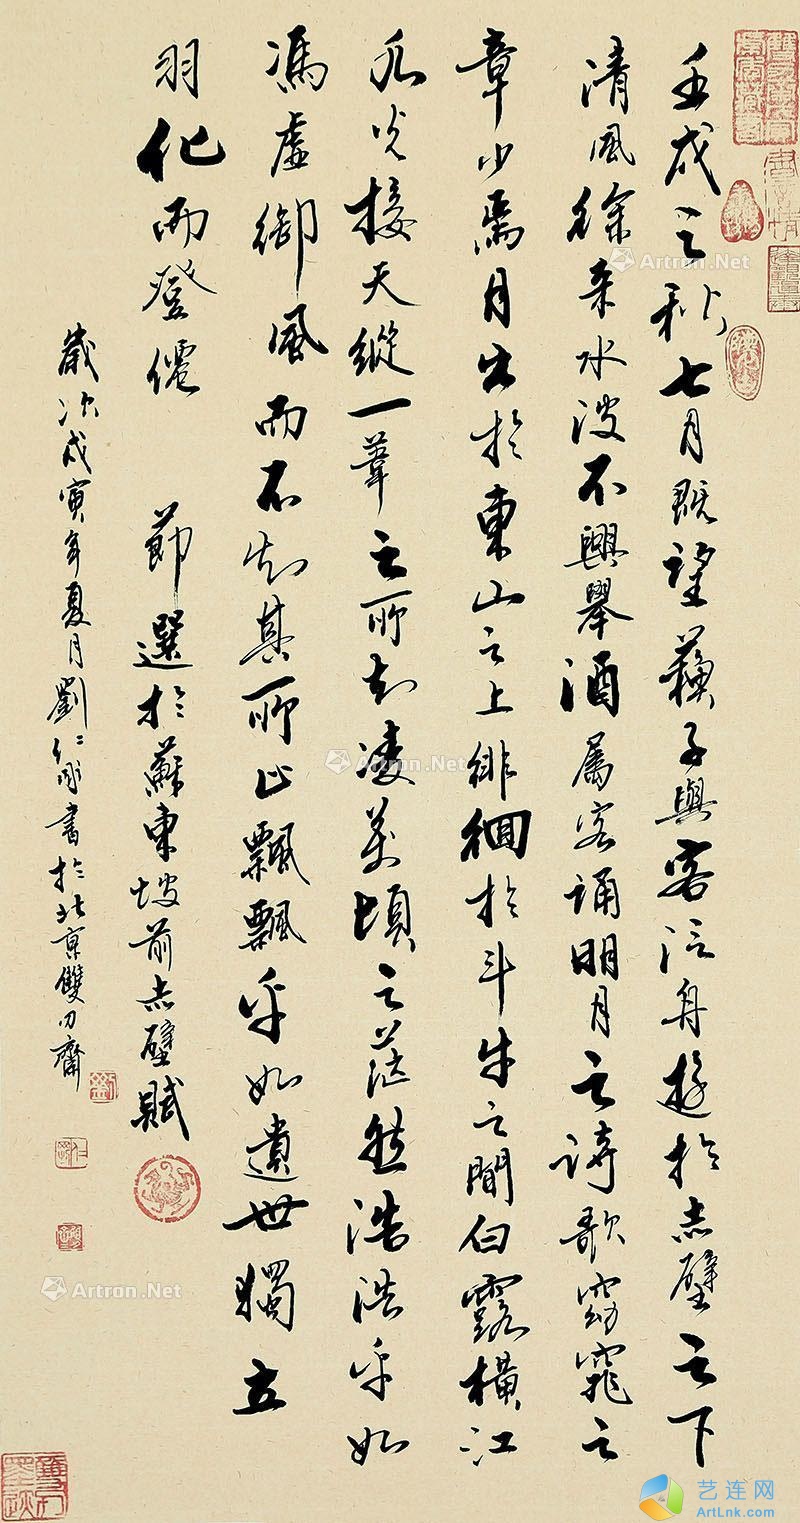 壬戌之秋七月既望蘇子與客泛舟遊於赤壁之下
清風徐來水波不興舉酒属客誦明月之詩歌窈窕之
章少焉月出於東山之上徘徊於斗牛之間白露橫江
水光接天縱一葦之所如凌萬頃之茫然浩浩乎如
馮虛御風而不知其所止飄飄乎如遺世獨立
羽化而登僊 節選於蘇東坡前赤壁賦
歲次戊寅年夏月劉仁剛書於北京雙刀齋
Artron.Net
Artron.Net
Artron.Net
Artron.Net
Artron.Net
Artron.Net
艺连网
ArtLnk.com